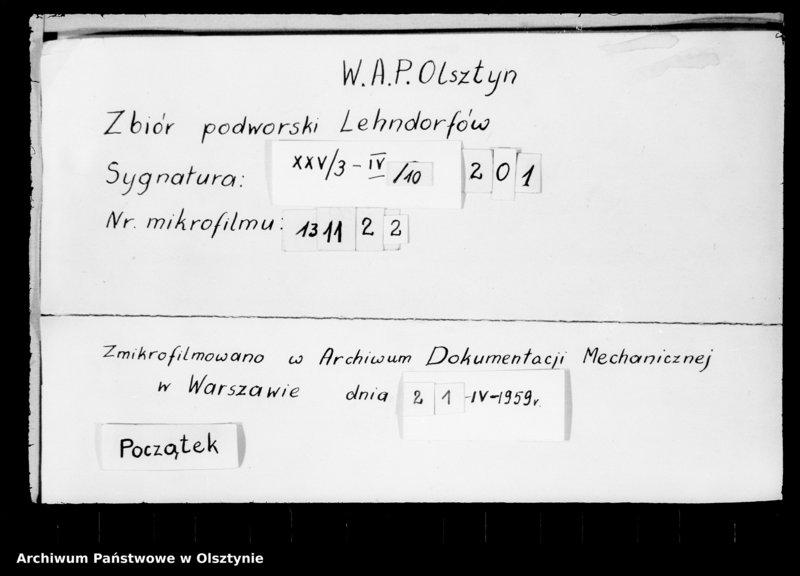 W.A.P. Olsztyn
Zbiór podworski Lehndorfów
Sygnatura: XXV/3-IV/10 201
Nr. mikrofilmu: 131122
Zmikrofilmowano w Archiwum Dokumentacji Mechanicznej
w Warszawie dnia 21-IV-1959r.
Początek
Archiwum Państwowe w Olsztynie